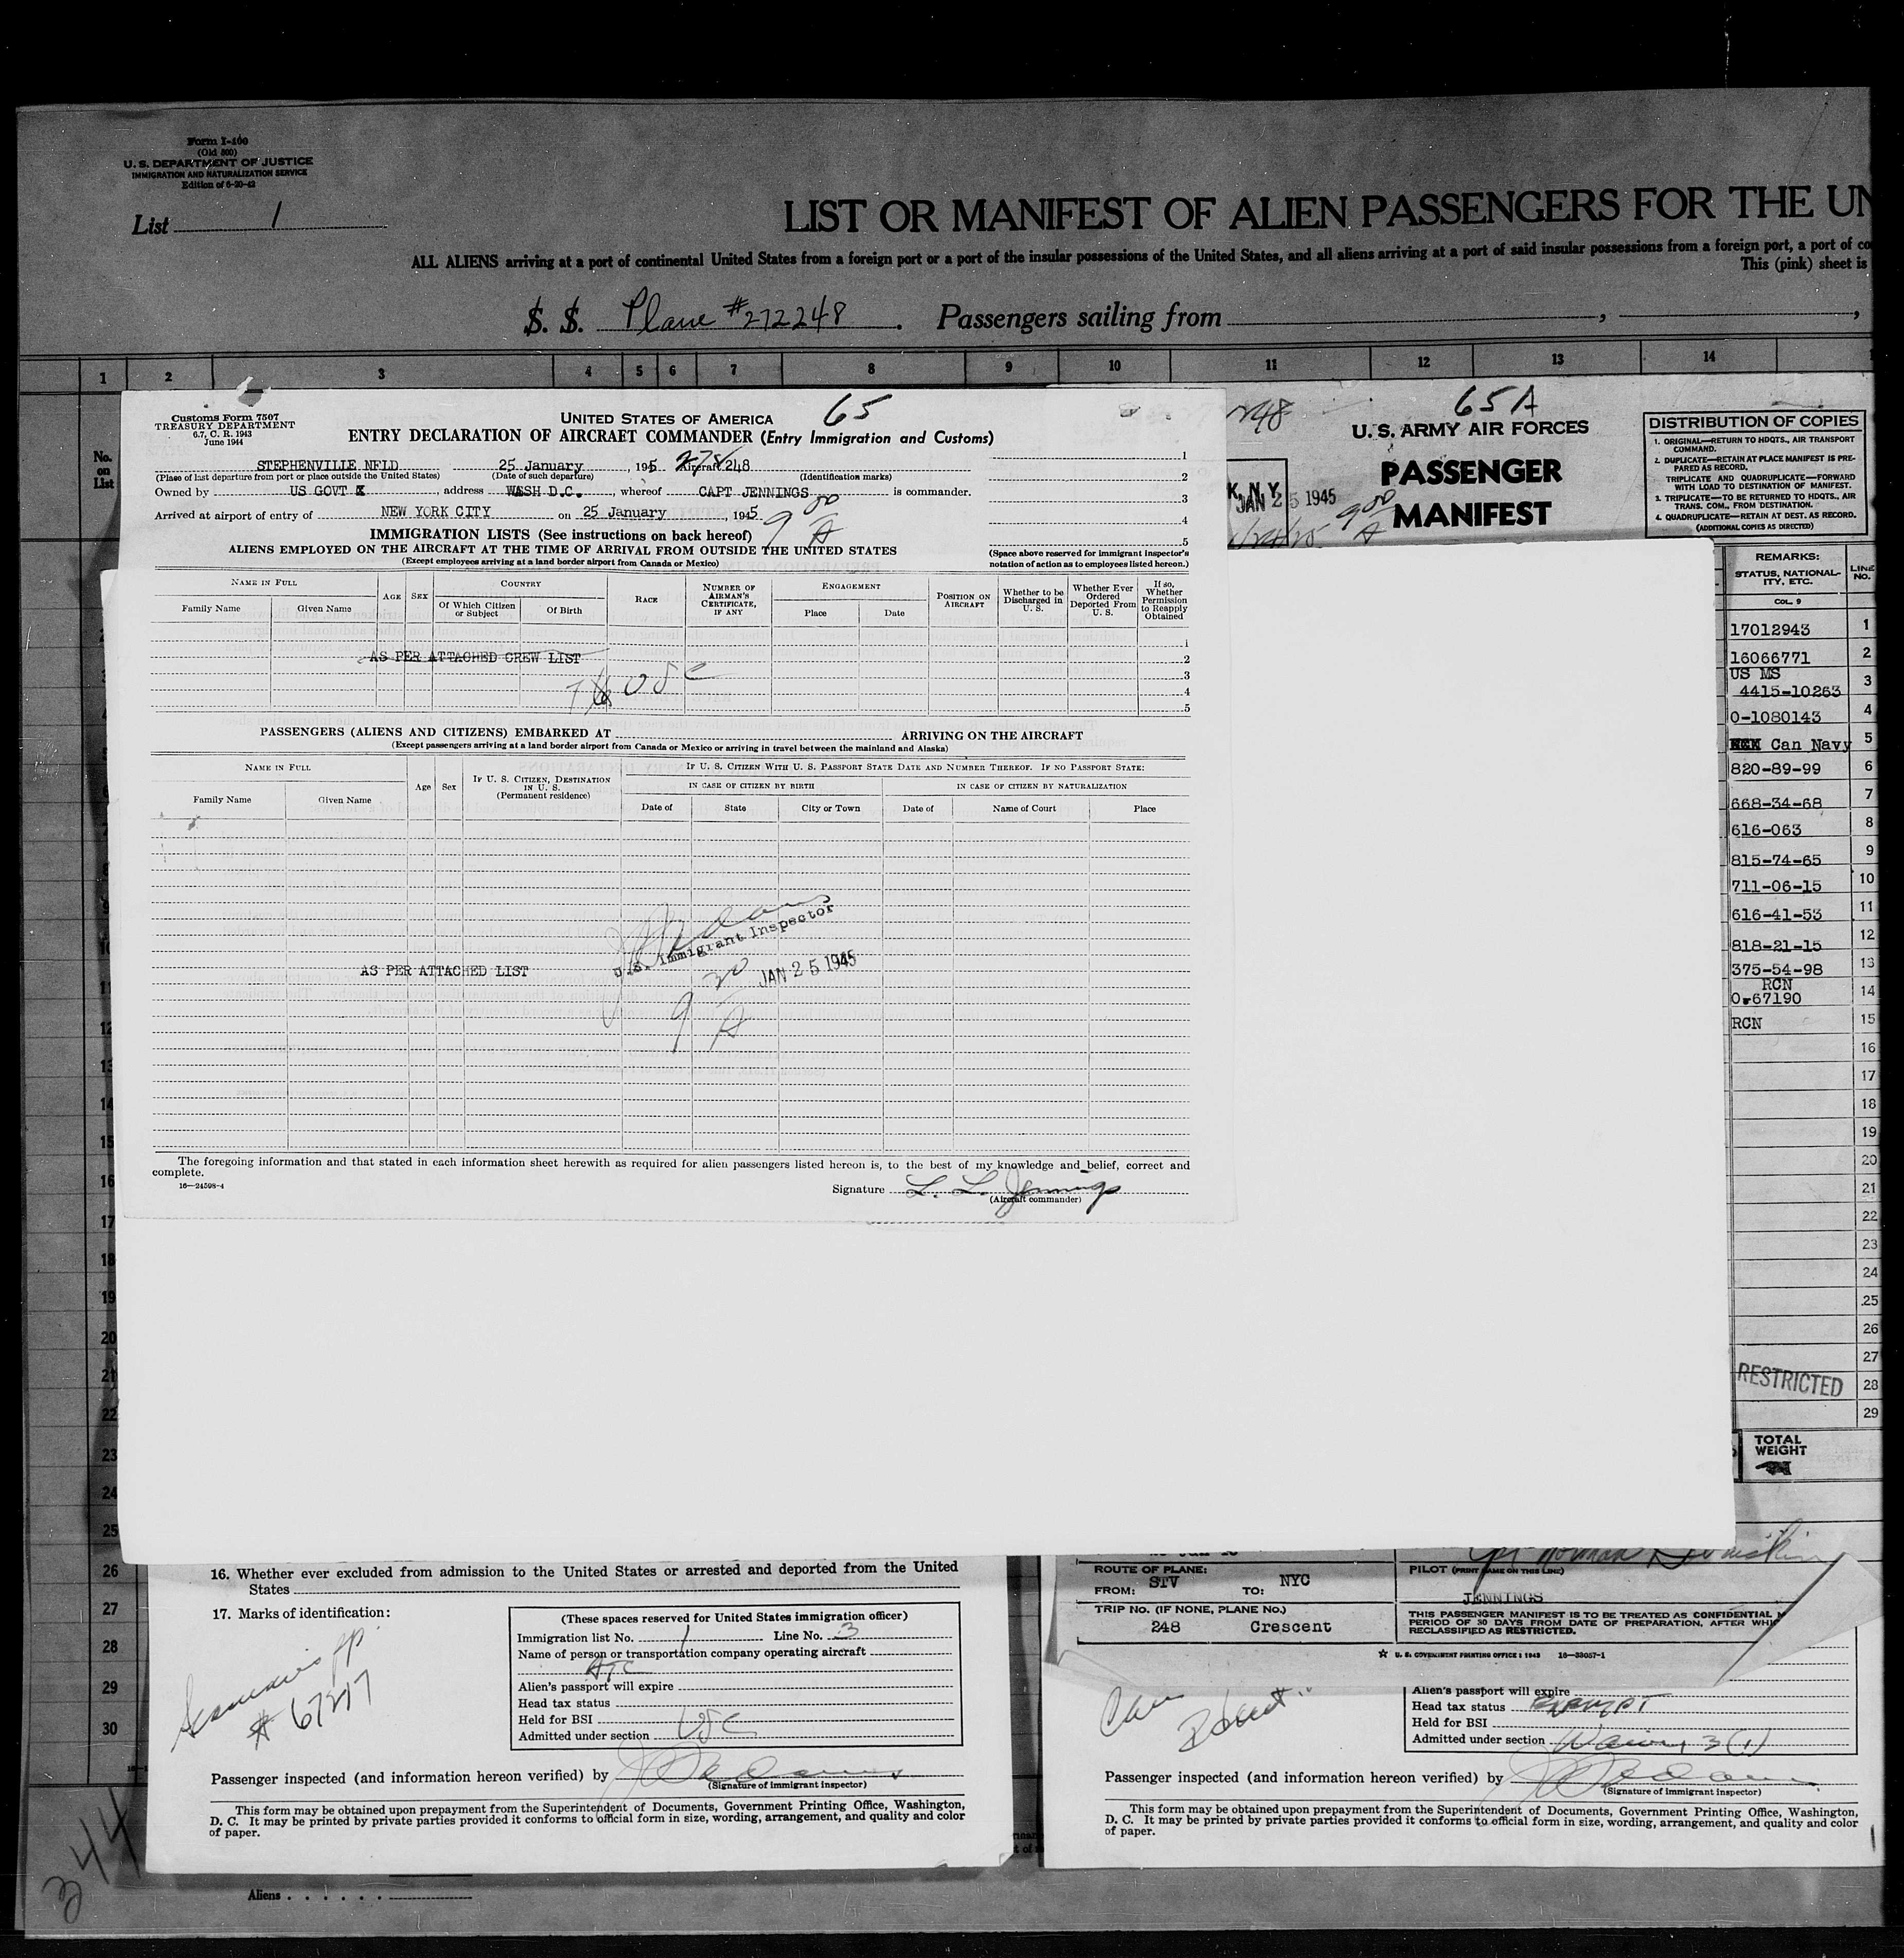 Form I-100
(Old 500)
U. S. DEPARTMENT OF JUSTICE
IMMIGRATION AND NATURALIZATION SERVICE
Edition of 6-20-42
List 1
LIST OR MANIFEST OF ALIEN PASSENGERS FOR THE UN
ALL ALIENS arriving at a port of continental United States from a foreign port or a port of the insular possessions of the United States, and all aliens arriving at a port of said insular possessions from a foreign port, a port of co
This (pink) sheet is
S. S. Plane #272248 . Passengers sailing from , ,
1 2 3 4 5 6 7 8 9 10 11 12 13 14
No. on List
Customs Form 7507
TREASURY DEPARTMENT
6.7, C. R. 1943
June 1944
UNITED STATES OF AMERICA 65
ENTRY DECLARATION OF AIRCRAFT COMMANDER (Entry Immigration and Customs)
STEPHENVILLE NFLD 25 January , 1945 Aircraft 248
(Place of last departure from port or place outside the United States) (Date of such departure) (Identification marks)
Owned by US GOVT , address WASH D.C. , whereof CAPT JENNINGS is commander.
Arrived at airport of entry of NEW YORK CITY on 25 January , 1945 9 00 A
1
2
3
4
5
IMMIGRATION LISTS (See instructions on back hereof)
ALIENS EMPLOYED ON THE AIRCRAFT AT THE TIME OF ARRIVAL FROM OUTSIDE THE UNITED STATES
(Except employees arriving at a land border airport from Canada or Mexico)
(Space above reserved for immigrant inspector's notation of action as to employees listed hereon.)
NAME IN FULL
Family Name Given Name
AGE SEX
COUNTRY
Of Which Citizen or Subject Of Birth
RACE
NUMBER OF AIRMAN'S CERTIFICATE, IF ANY
ENGAGEMENT
Place Date
POSITION ON AIRCRAFT
Whether to be Discharged in U. S.
Whether Ever Ordered Deported From U. S.
If so, Whether Permission to Reapply Obtained
AS PER ATTACHED CREW LIST
USC
1
2
3
4
5
PASSENGERS (ALIENS AND CITIZENS) EMBARKED AT ARRIVING ON THE AIRCRAFT
(Except passengers arriving at a land border airport from Canada or Mexico or arriving in travel between the mainland and Alaska)
NAME IN FULL
Family Name Given Name
Age Sex
IF U. S. CITIZEN, DESTINATION IN U. S.
(Permanent residence)
IF U. S. CITIZEN WITH U. S. PASSPORT STATE DATE AND NUMBER THEREOF. IF NO PASSPORT STATE:
IN CASE OF CITIZEN BY BIRTH IN CASE OF CITIZEN BY NATURALIZATION
Date of State City or Town Date of Name of Court Place
U.S. Immigrant Inspector
AS PER ATTACHED LIST
JAN 25 1945
9 30 A
The foregoing information and that stated in each information sheet herewith as required for alien passengers listed hereon is, to the best of my knowledge and belief, correct and
complete.
16—24598-4
Signature L. L. Jennings
(Aircraft commander)
65A
U. S. ARMY AIR FORCES
PASSENGER
MANIFEST
K, N.Y.
JAN 25 1945
9 00 A
DISTRIBUTION OF COPIES
1. ORIGINAL—RETURN TO HDQTS., AIR TRANSPORT COMMAND.
2. DUPLICATE—RETAIN AT PLACE MANIFEST IS PREPARED AS RECORD.
TRIPLICATE AND QUADRUPLICATE—FORWARD WITH LOAD TO DESTINATION OF MANIFEST.
3. TRIPLICATE—TO BE RETURNED TO HDQTS., AIR TRANS. COM., FROM DESTINATION.
4. QUADRUPLICATE—RETAIN AT DEST. AS RECORD.
(ADDITIONAL COPIES AS DIRECTED)
REMARKS:
STATUS, NATIONALITY, ETC.
COL. 9
LINE NO.
17012943 1
16066771 2
US MS
4415-10263 3
0-1080143 4
Can Navy 5
820-89-99 6
668-34-68 7
616-063 8
815-74-65 9
711-06-15 10
616-41-53 11
818-21-15 12
375-54-98 13
RCN
0-67190 14
RCN 15
16
17
18
19
20
21
22
23
24
25
26
27
RESTRICTED 28
29
TOTAL WEIGHT
16. Whether ever excluded from admission to the United States or arrested and deported from the United
States
17. Marks of identification:
# 67277
(These spaces reserved for United States immigration officer)
Immigration list No. 1 Line No. 3
Name of person or transportation company operating aircraft
ATC
Alien's passport will expire
Head tax status
Held for BSI
Admitted under section USC
Passenger inspected (and information hereon verified) by
(Signature of immigrant inspector)
This form may be obtained upon prepayment from the Superintendent of Documents, Government Printing Office, Washington,
D. C. It may be printed by private parties provided it conforms to official form in size, wording, arrangement, and quality and color
of paper.
ROUTE OF PLANE:
FROM: STV TO: NYC
TRIP NO. (IF NONE, PLANE NO.)
248 Crescent
PILOT (PRINT NAME ON THIS LINE)
JENNINGS
THIS PASSENGER MANIFEST IS TO BE TREATED AS CONFIDENTIAL
PERIOD OF 30 DAYS FROM DATE OF PREPARATION, AFTER WHIC
RECLASSIFIED AS RESTRICTED.
U. S. GOVERNMENT PRINTING OFFICE : 1943 16—33057-1
Alien's passport will expire
Head tax status Exempt
Held for BSI
Admitted under section Waiver 3(1)
Passenger inspected (and information hereon verified) by
(Signature of immigrant inspector)
This form may be obtained upon prepayment from the Superintendent of Documents, Government Printing Office, Washington,
D. C. It may be printed by private parties provided it conforms to official form in size, wording, arrangement, and quality and color
of paper.
16
17
18
19
20
21
22
23
24
25
26
27
28
29
30
344
Aliens . . . . . .